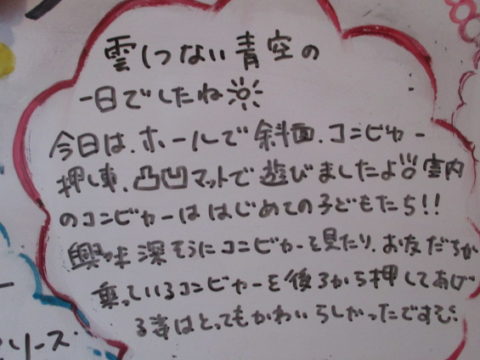 雲1つない青空の
一日でしたね
今日は、ホールで斜面、コンビカー
押し車、凸凹マットで遊びましたよ 室内
のコンビカーははじめての子どもたち!!
興味深そうにコンビカーを見たり、お友だちが
乗っているコンビカーを後ろから押してあげ
る姿はとってもかわいらしかったですよ
ー
リーズ